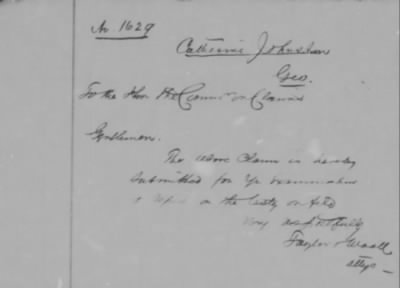 No. 1629
Catherine Johnston
Geo.
To the Hon. the Comrs on Claims
Gentlemen.
The above Claim is hereby
submitted for yr examination
on the
Very respectfully
Taylor
attys